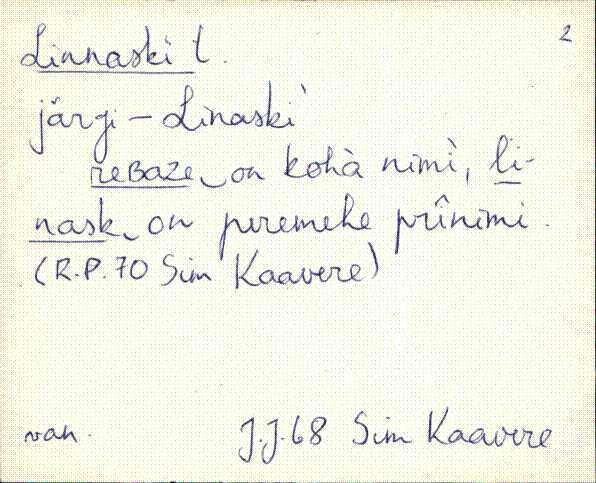 2
Linnaski t.
järgi – Linaski'
reBaze on kohà nimì, li-
nask on peremehe prînimi.
(R.P. 70 Sim Kaavere)
van. J.J.68 Sim Kaavere